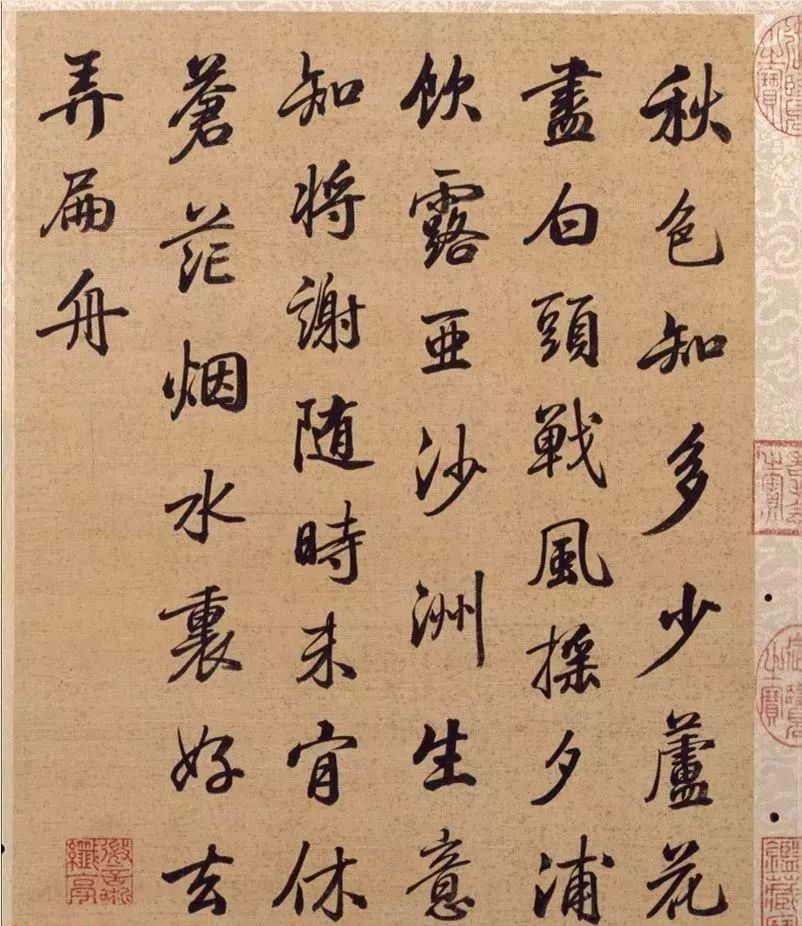 秋色知多少蘆花
盡白頭戰風搖夕浦
飲露亞沙洲生意
知將謝随時未肎休
蒼茫烟水裏好去
弄扁舟
微言晰
纖毫